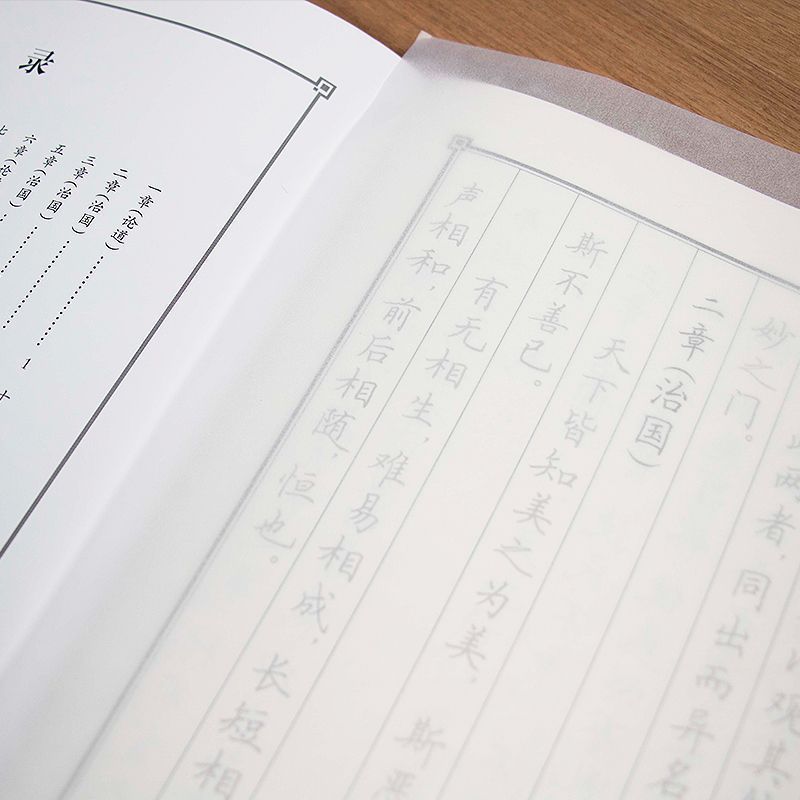 录
一章(论道)……1
二章(治国)……
三章(治国)……
五章(治国)……
六章(论
七
观其
两者，同出而异名
妙之门。
二章(治国)
天下皆知美之为美，斯恶
斯不善已。
有无相生，难易相成，长短相
声相和，前后相随，恒也。